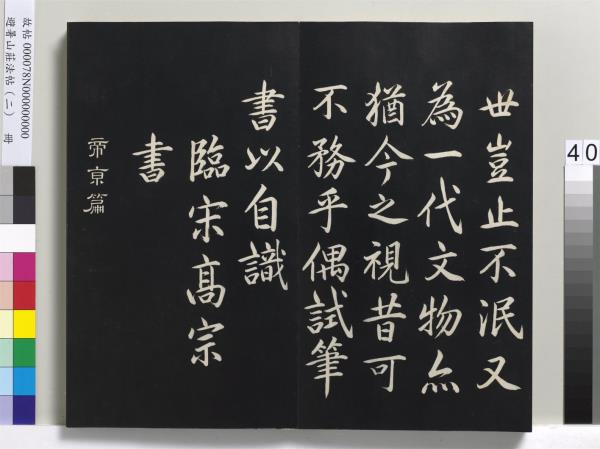 世豈止不泯又
為一代文物亦
猶今之視昔可
不務乎偶試筆
書以自識
臨宋高宗
書
帝京篇
故帖 000078N000000000
避暑山莊法帖(二) 冊
40